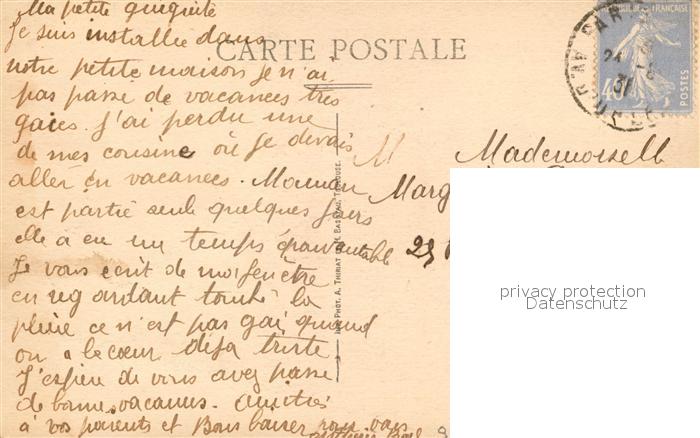 Ma petite
je suis installée dans
notre petite maison je n'ai
pas passé de vacances très
gaies. J'ai perdu une
de mes cousine où je devais
aller en vacances. Maman
est partie seule quelques jours
elle a eu un temps épouvantable
Je vous écrit de ma fenêtre
en regardant tombé la
pluie ce n'est pas gai quand
on a le coeur déja triste
J'espère de vous avez passé
de bonne vacances. Amitiés
à vos parents et Bons baiser pour vous
CARTE POSTALE
M Mademoiselle
Marg
25
PHOT. A. THIRIAT
TOULOUSE
FRANÇAISE
POSTES
40
privacy protection
Datenschutz